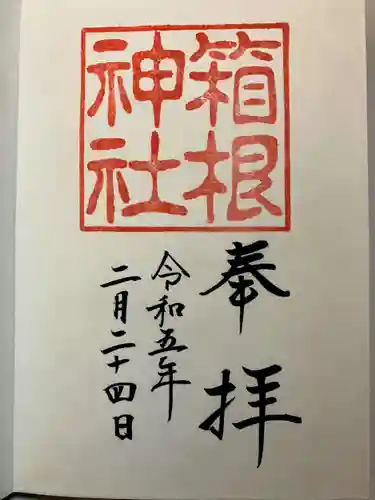 箱根
神社
奉拝
令和五年
二月二十四日